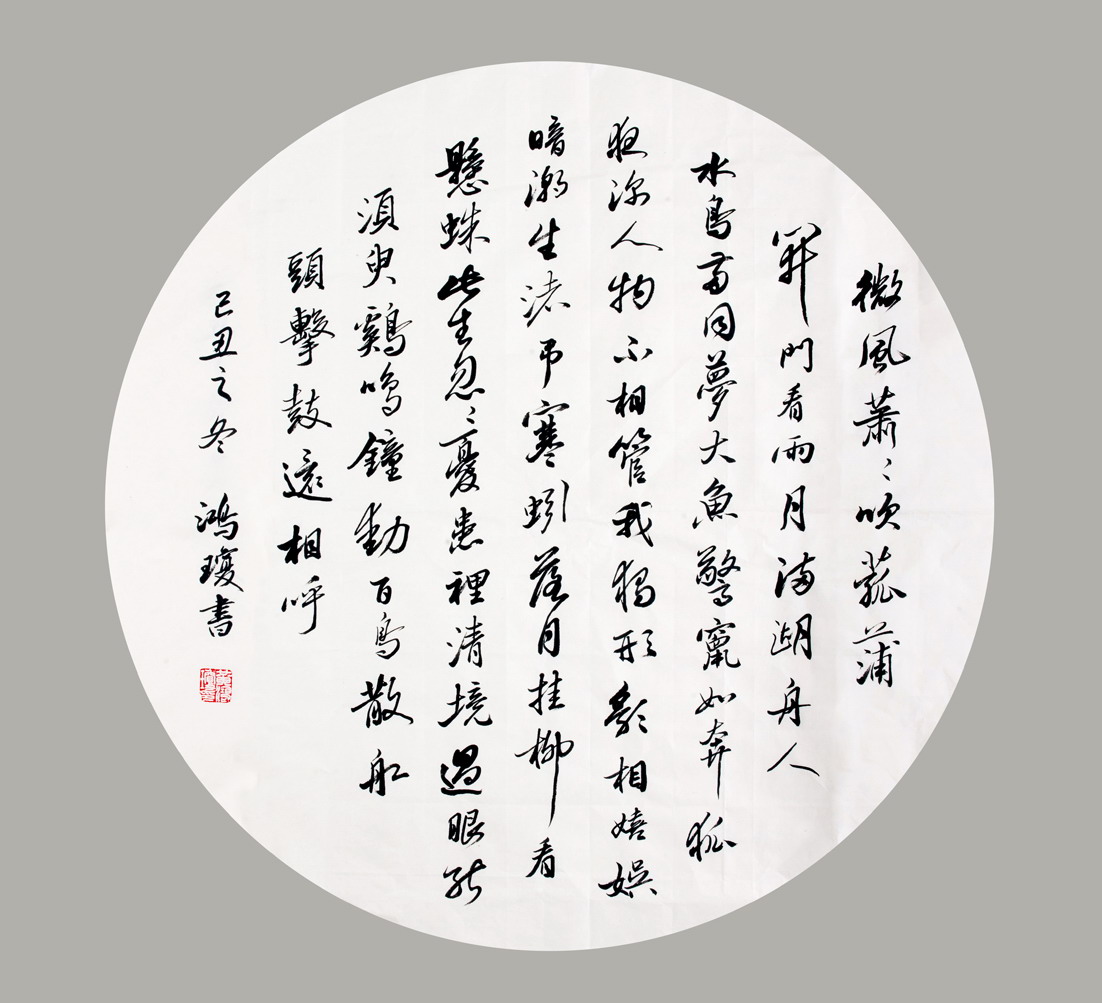 微風蕭〻吹菰蒲
開門看雨月滿湖舟人
水鳥兩同夢大魚驚竄如奔狐
夜深人物不相管我獨形影相嬉娛
暗潮生渚弔寒蚓落月挂柳看
懸蛛此生忽〻憂患裡清境過眼能
須臾鷄鳴鐘動百鳥散船
頭擊鼓還相呼
己丑之冬 鴻瓊書